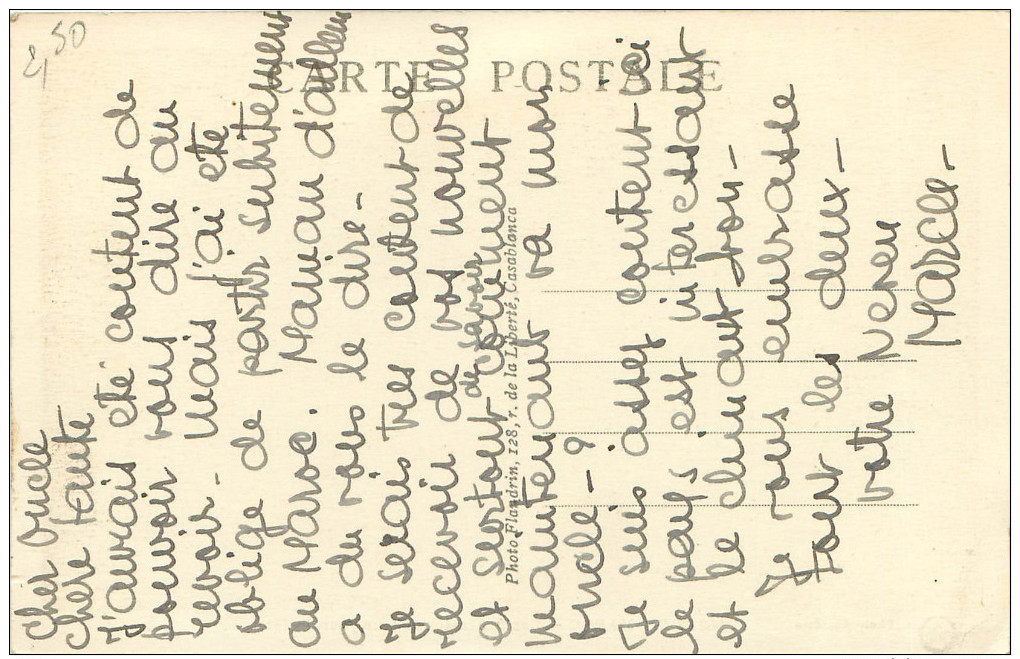 2,50
CARTE POSTALE
Cher Oncle
Chère tante
J'aurais été content de
pouvoir vous dire au
revoir - mais j'ai été
obligé de partir subitement
au Maroc. Maman d'ailleurs
a du vous le dire -
Je serais très content de
recevoir de vos nouvelles
et surtout de savoir comment
maintenant va mon
oncle - ?
Je suis assez content ici
le pays est interessant
et le climat bon -
Je vous embrasse
tous les deux -
votre Neveu
Marcel -
Photo Flandrin, 128, r. de la Liberté, Casablanca